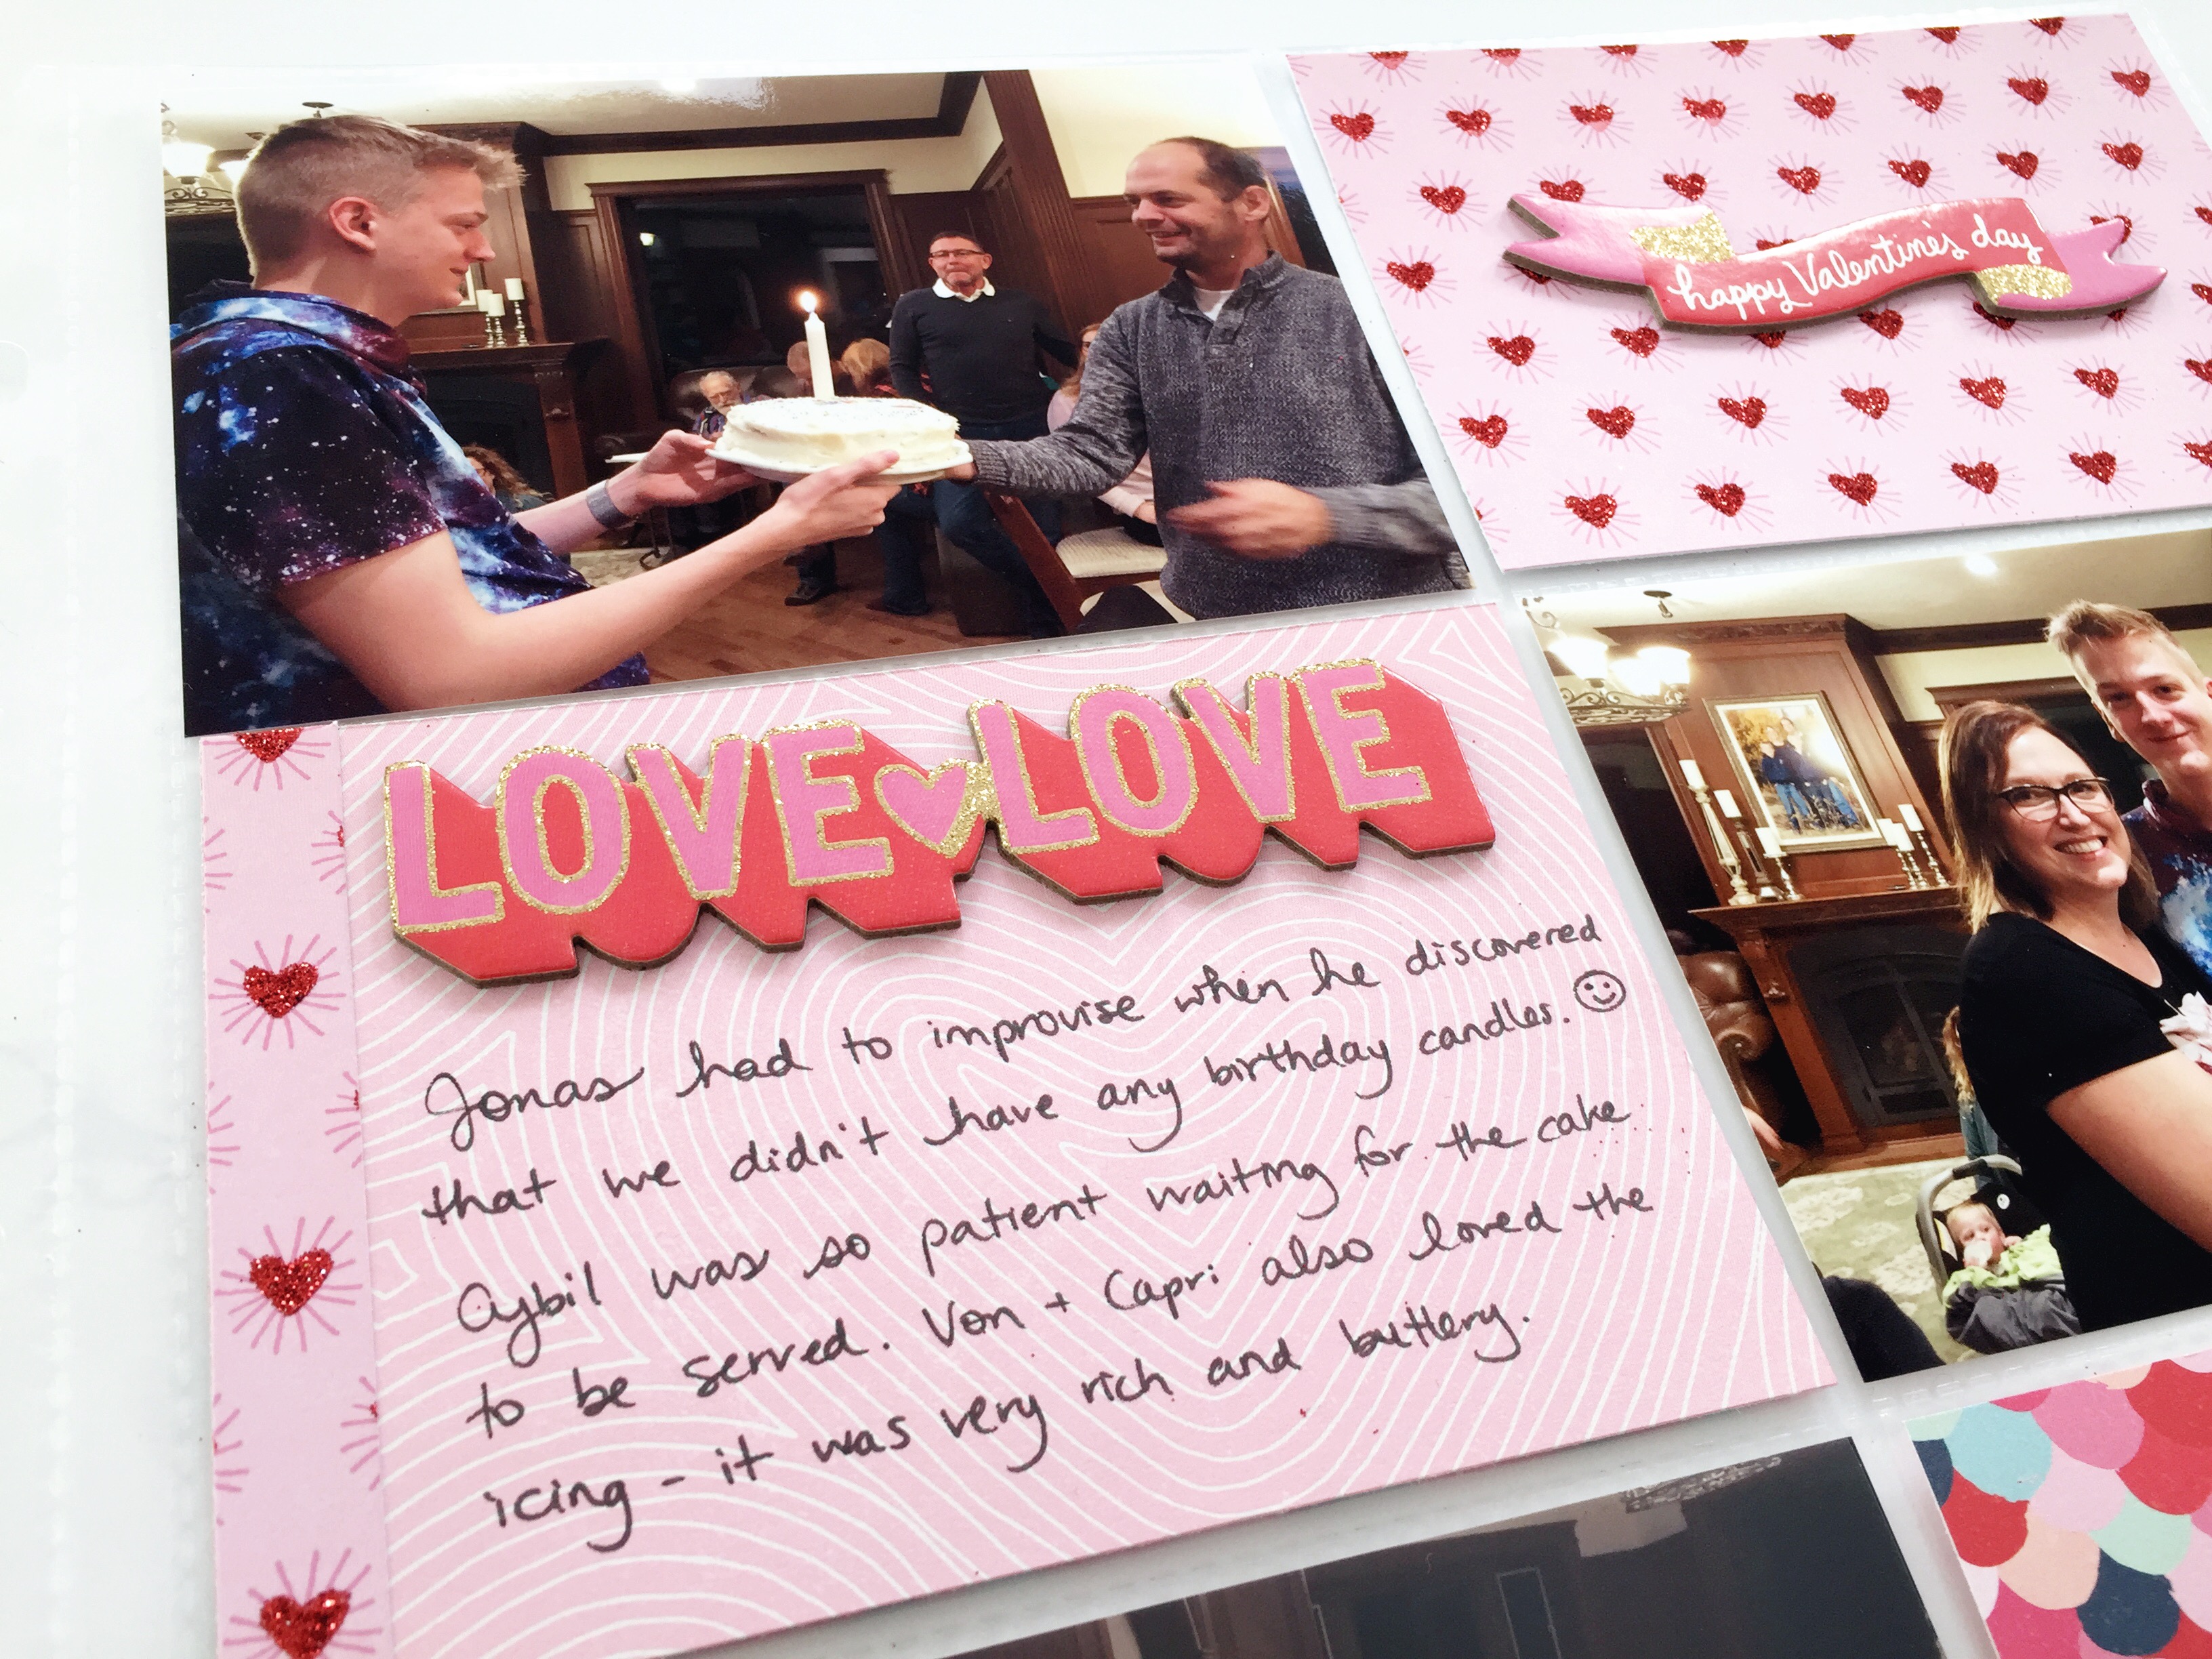 happy Valentine's day
LOVE LOVE
Jonas had to improvise when he discovered
that we didn't have any birthday candles.
Aybil was so patient waiting for the cake
to be served. Von + Capri also loved the
icing - it was very rich and buttery.